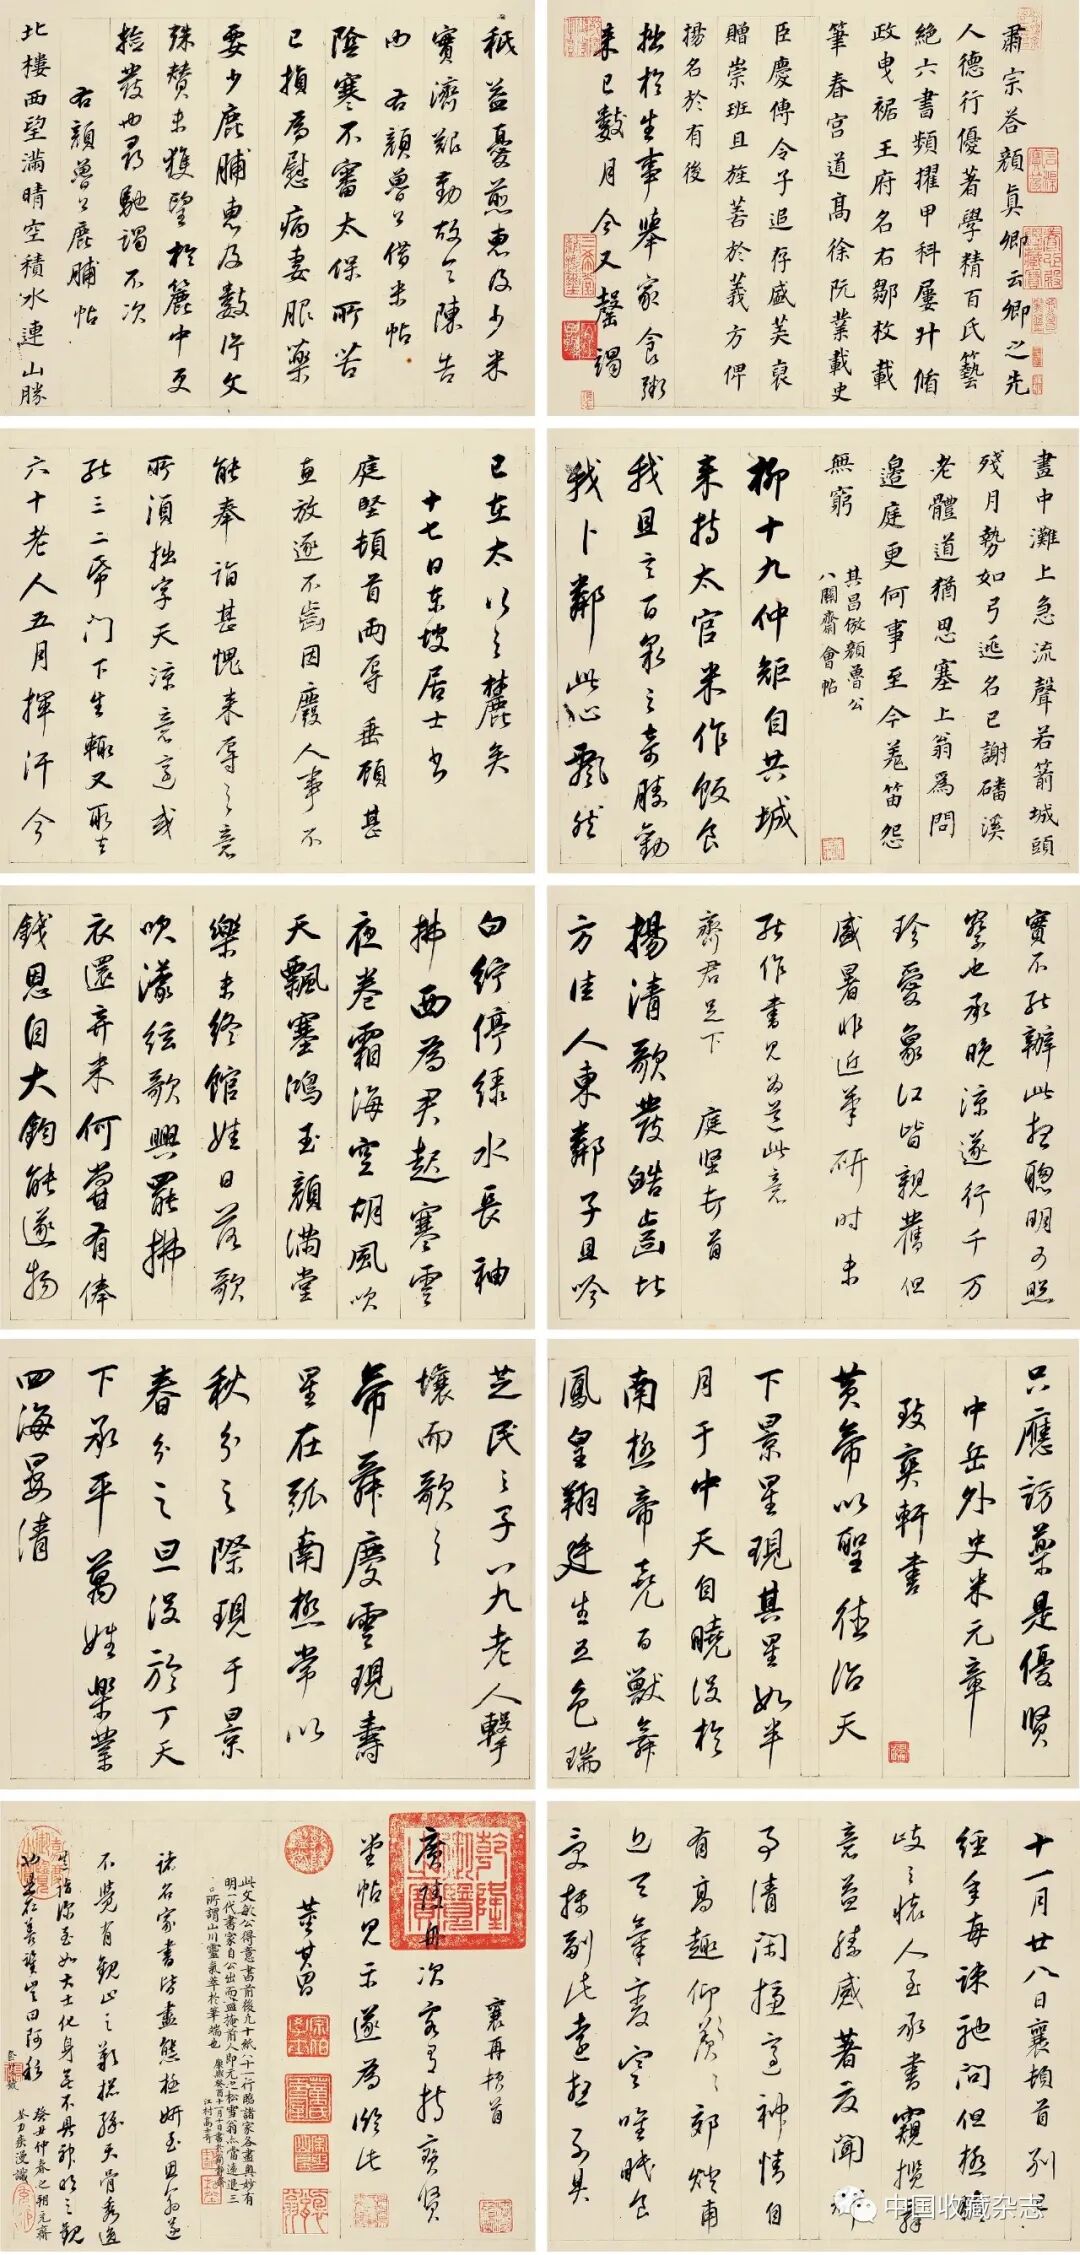 肅宗答顏真卿云卿之先
人德行優著學精百氏藝
絕六書頻擢甲科屢升循
政曳裾王府名右鄒枚載
筆春宮道高徐阮業載史
臣慶傳令子追存盛美裒
贈崇班且旌善於義方俾
揚名於有後
拙於生事舉家食粥
來已數月今又罄竭
秖益憂煎惠及少米
實濟艱勤故令陳告
也右顏魯公借米帖
陰寒不審太保所苦
已損為慰病妻服藥
要少鹿脯惠及數片父
殊贊未獲望於簏中更
拾發也尋馳謁不次
右顏魯公鹿脯帖
北樓西望滿晴空積水連山勝
畫中灘上急流聲若箭城頭
殘月勢如弓逃名已謝磻溪
老體道猶思塞上翁為問
邊庭更何事至今羌笛怨
無窮
其昌倣顏魯公
八關齋會帖
柳十九仲矩自共城
來持太官米作飯食
我且言百泉之奇勝勸
我卜鄰此心飄然
已在太行之麓矣
十七日東坡居士書
庭堅頓首兩辱垂顧甚
惠放逐不齒因廢人事不
能奉詣甚愧來辱之意
所須拙字天涼意適或
能三二紙門下生輒又取去
六十老人五月揮汗今
實不能辦此想聰明可照
察也承晚涼遂行千萬
珍愛象江皆親舊但
盛暑非近筆研時未
能作書見為道此意
齊君足下 庭堅頓首
揚清歌發皓齒北
方佳人東鄰子且吟
白紵停綠水長袖
拂面為君起寒雲
夜卷霜海空胡風吹
天飄塞鴻玉顏滿堂
樂未終館娃日落歌
吹濛絃歌興罷拂
衣還棄來何嘗有俸
錢恩自大鈞能遂物
只應訪藥是優賢
中岳外史米元章
致爽軒書
黃帝以聖德治天
下景星現其星如半
月于中天自曉沒於
南極帝堯百獸舞
鳳皇翔廷生五色瑞
芝民之子八九老人擊
壤而歌之
帝舜慶雲現壽
星在弧南極常以
秋分之際現于景
春分之旦沒於丁天
下承平萬姓樂業
四海晏清
十一月廿八日襄頓首別
經年每諫馳問但極
歧之懷人至承書竊攬辭
意益勝感著夜聞
清閑攜高神情自
有高趣仰羨之郊
近天氣寒唯
襄再頓首
廣陵舟次客有持寶賢
堂帖見示遂為臨此
董其昌
此文敏公得意書前後九十紙八十一行臨諸家各盡奧妙有
明一代書家自公出而盡掩前人即元之松雪翁亦當遠退三
所謂山川靈氣萃於筆端也
諸名家書皆盡態極妍至思翁遂
不覺有觀止之歎
中国收藏杂志